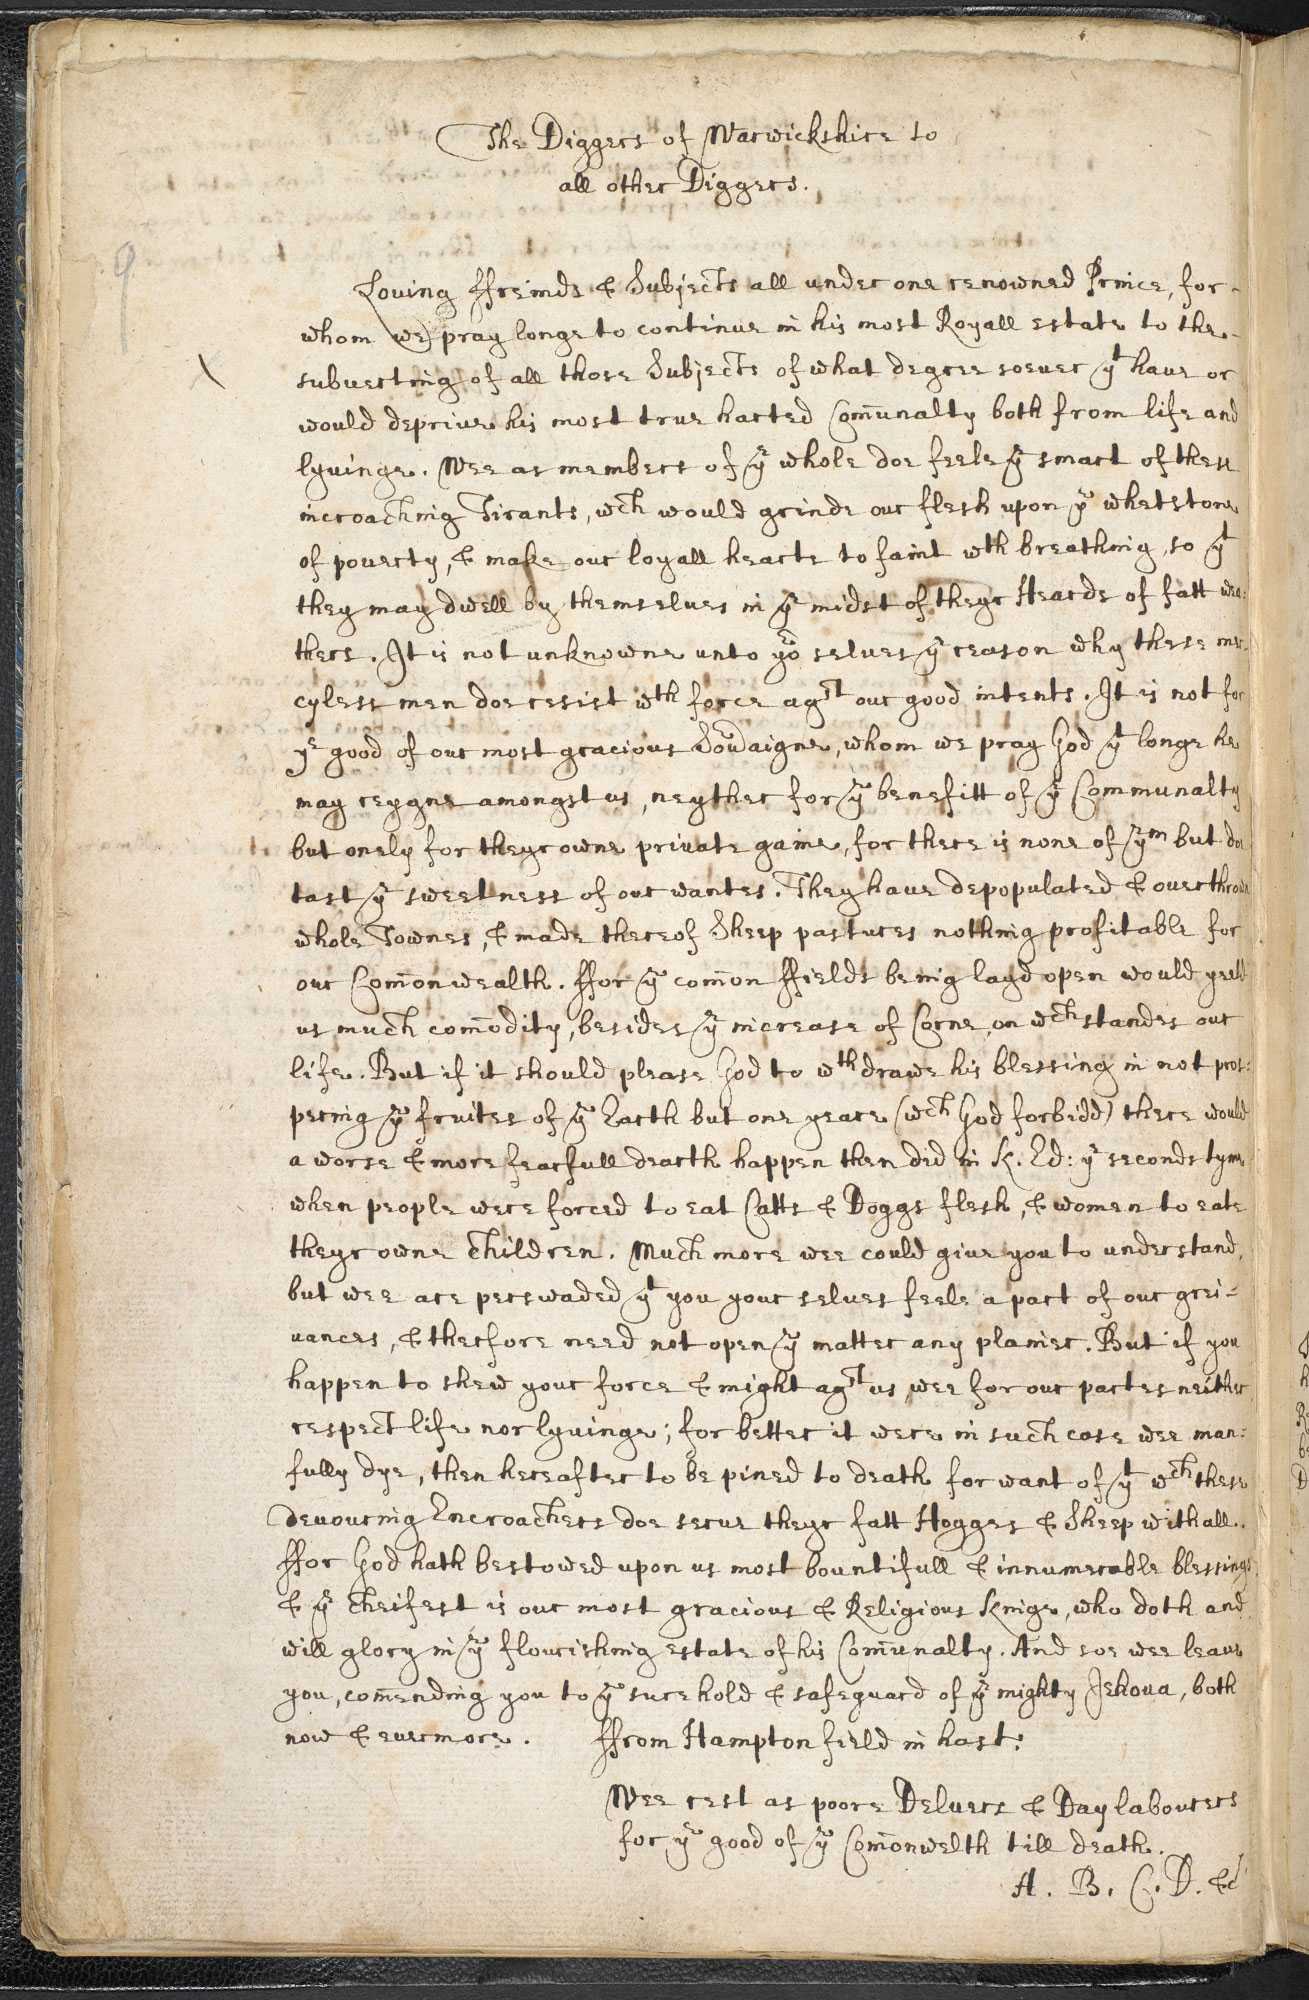 9
The Diggers of Warwickshire to
all other Diggers.
Loving ffreinds & Subjects all under one renowned Prince, for
whom we pray longe to continue in his most Royall estate to the
subverting of all those Subjects of what degree soever yt have or
would deprive his most true harted Com̄unalty both from life and
lyvinge. Wee as members of ye whole doe feele ye smart of these
incroaching Tirants, wch would grinde our flesh upon ye whetstone
of poverty, & make our loyall hearts to faint wth breathing, so yt
they may dwell by themselves in ye midst of theyr Heards of fatt wea:
thers. It is not unknowne unto yor selves ye reason why these mer-
cyless men doe resist wth force agst our good intents. It is not for
ye good of our most gracious Sovraigne, whom we pray God yt longe he
may reygne amongst us, neyther for ye benefitt of ye Communalty
but onely for theyr owne private gaine, for there is none of ym but doe
tast ye sweetness of our wantes. They have depopulated & overthrown
whole Townes, & made thereof Sheep pastures nothing profitable for
our Com̄onwealth. ffor ye com̄on ffields being layd open would yeeld
us much com̄odity, besides ye increase of Corne, on wch standes our
life. But if it should please God to wthdrawe his blessing in not pros:
pering ye fruites of ye Earth but one yeare (wch God forbidd) there would
a worse & more fearfull dearth happen then did in K. Ed: ye seconds tyme
when people were forced to eat Catts & Doggs flesh, & women to eate
theyr owne children. Much more wee could give you to understand,
but wee are perswaded yt you your selves feele a part of our grei-
vances, & therfore need not open ye matter any plainer. But if you
happen to shew your force & might agst us, wee for our partes neither
respect life nor lyvinge; for better it were in such case wee man:
fully dye, then hereafter to be pined to death for want of yt wch these
devouring Encroachers doe serve theyr fatt Hogges & Sheep withall.
ffor God hath bestowed upon us most bountifull & innumerable blessings
& ye cheifest is our most gracious & Religious Kinge, who doth and
will glory in ye flourishing estate of his Com̄unalty. And soe wee leave
you, com̄ending you to ye sure hold & safeguard of ye mighty Jehova, both
now & evermore. ffrom Hampton field in hast:
Wee rest as poore Delvers & Day labourers
for ye good of ye Com̄onwelth till death.
A. B. C. D. &c